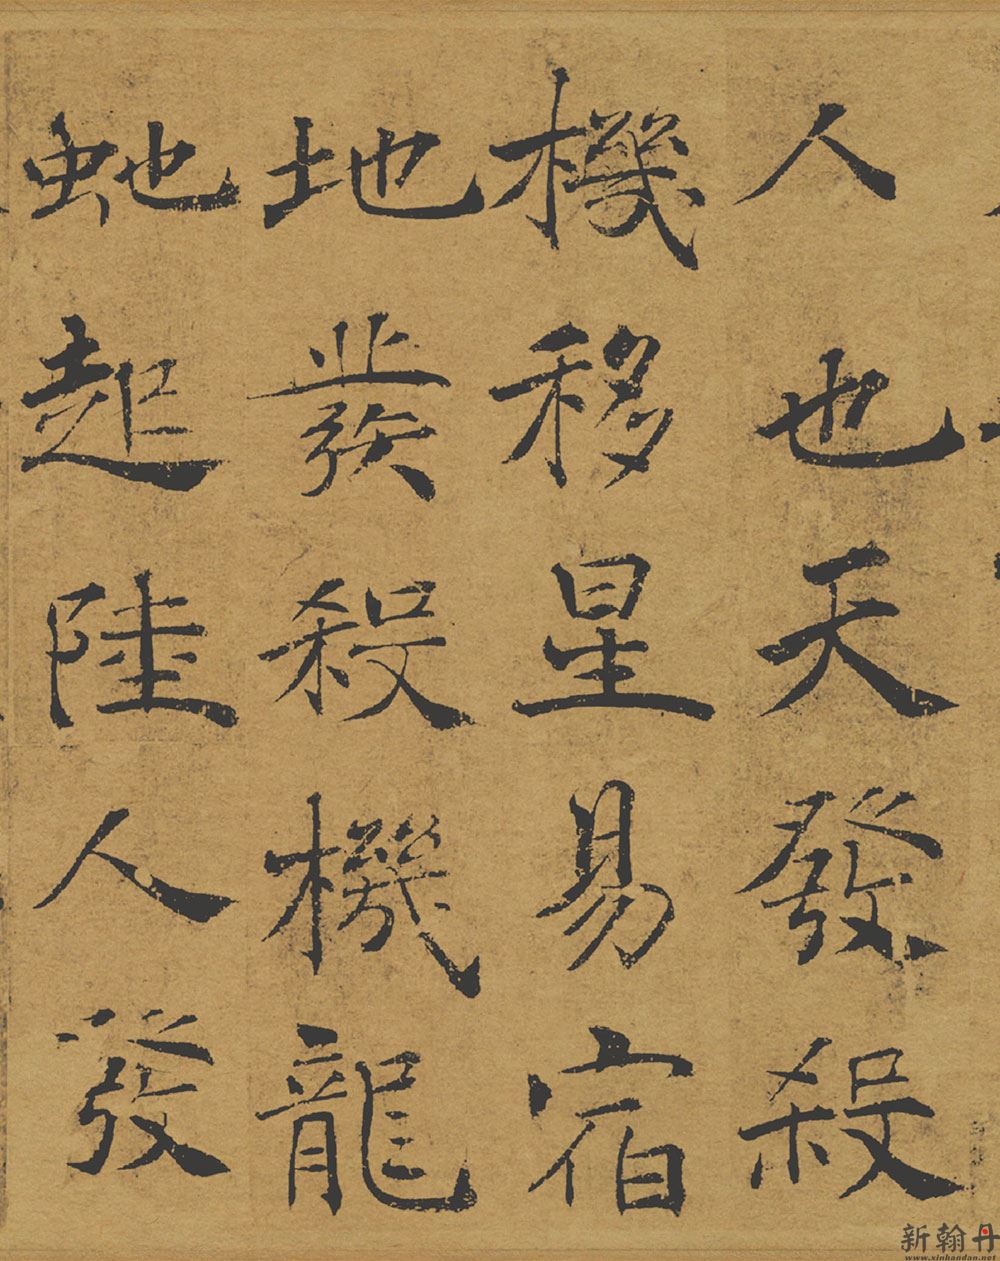 人也天發殺
機移星易宿
地發殺機龍
虵起陸人發
新翰丹
www.xinhandan.net